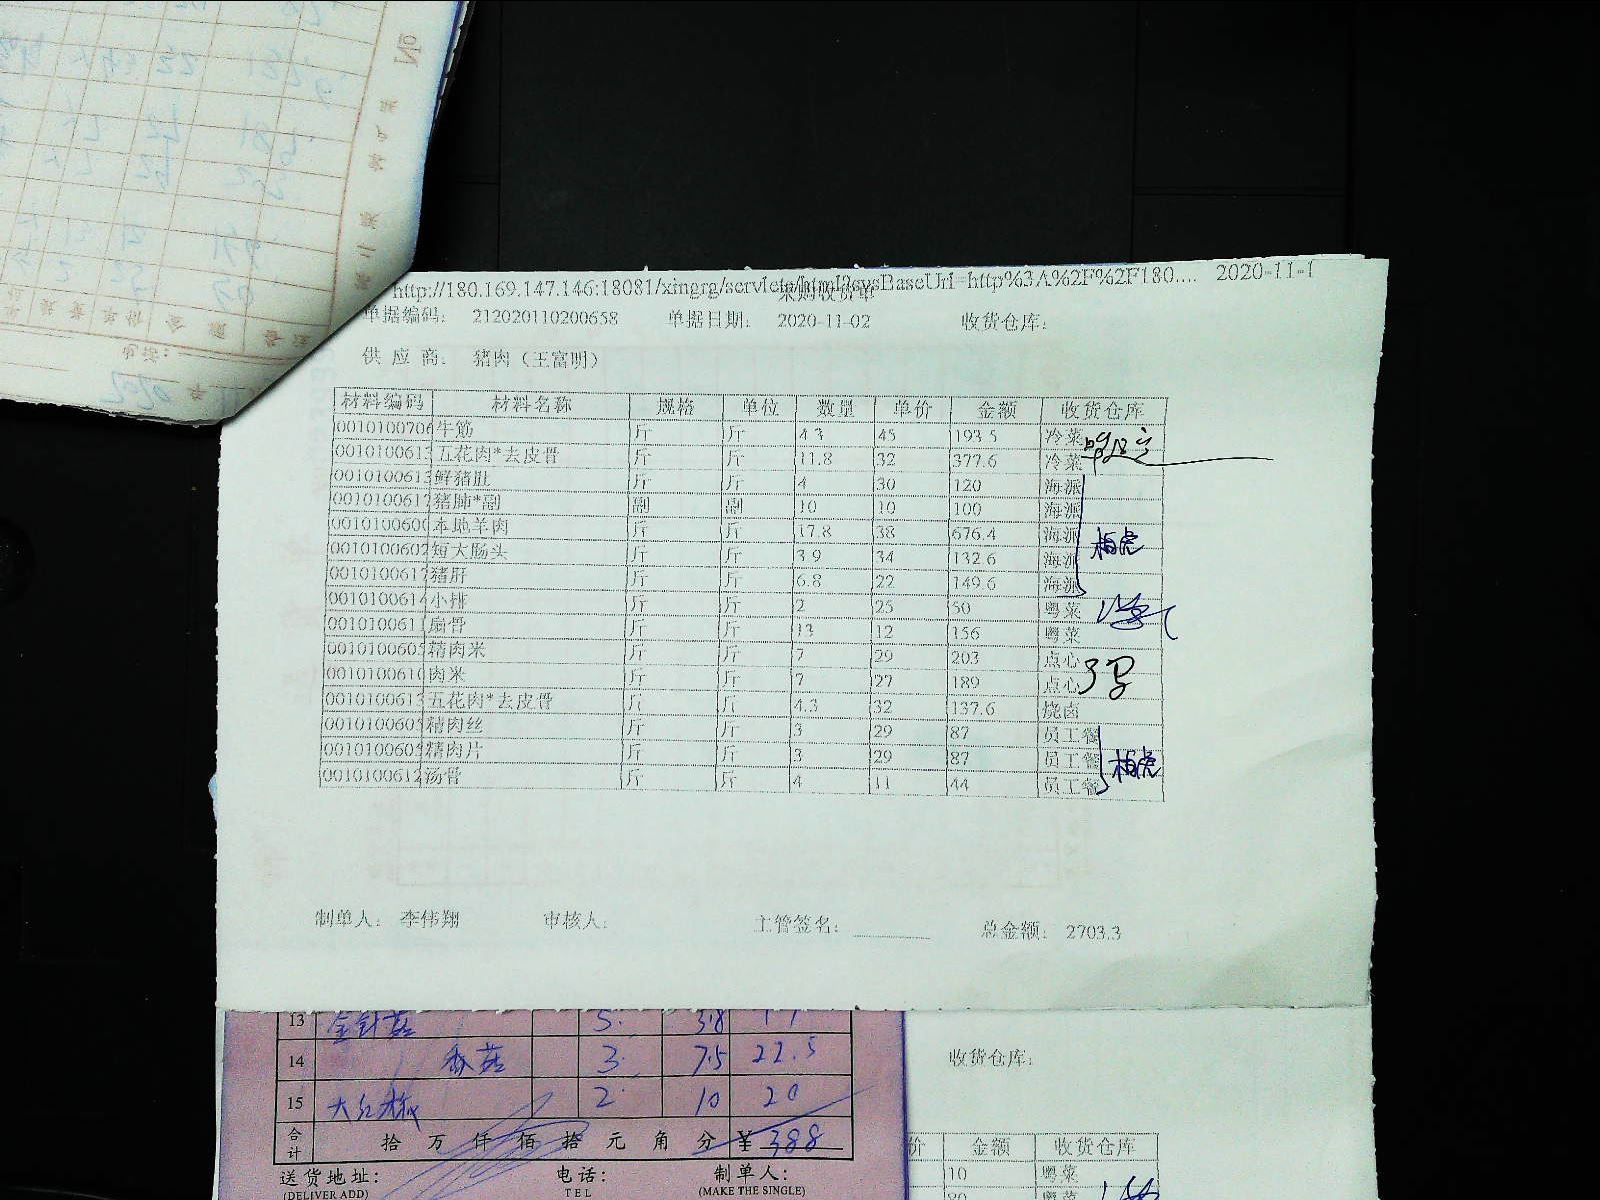 http://180.169.147.146:18081/xingrg/servlet/html?sysBaseUrl=http%3A%2F%2F180.... 2020-11-1
采购收货单
单据编码： 212020110200658 单据日期： 2020-11-02 收货仓库：
供 应 商： 猪肉（王富明）
材料编码 材料名称 规格 单位 数量 单价 金额 收货仓库
0010100706 牛筋 斤 斤 4.3 45 193.5 冷菜
0010100613 五花肉*去皮骨 斤 斤 11.8 32 377.6 冷菜
0010100613 鲜猪肚 斤 斤 4 30 120 海派
0010100617 猪肺*副 副 副 10 10 100 海派
0010100600 本地羊肉 斤 斤 17.8 38 676.4 海派
0010100602 短大肠头 斤 斤 3.9 34 132.6 海派
0010100617 猪肝 斤 斤 6.8 22 149.6 海派
0010100614 小排 斤 斤 2 25 50 粤菜
0010100611 扇骨 斤 斤 13 12 156 粤菜
0010100605 精肉米 斤 斤 7 29 203 点心
0010100610 肉米 斤 斤 7 27 189 点心
0010100613 五花肉*去皮骨 斤 斤 4.3 32 137.6 烧卤
0010100605 精肉丝 斤 斤 3 29 87 员工餐
0010100605 精肉片 斤 斤 3 29 87 员工餐
0010100612 汤骨 斤 斤 4 11 44 员工餐
柏虎
柏虎
制单人： 李伟翔 审核人： 主管签名： 总金额： 2703.3
13 金针菇 5 3.8 19
14 香菇 3 7.5 22.5
15 大红椒 2 10 20
合计 拾 万 仟 佰 拾 元 角 分 ¥ 388
送货地址： 电话： 制单人：
(DELIVER ADD) TEL (MAKE THE SINGLE)
收货仓库：
价 金额 收货仓库
10 粤菜